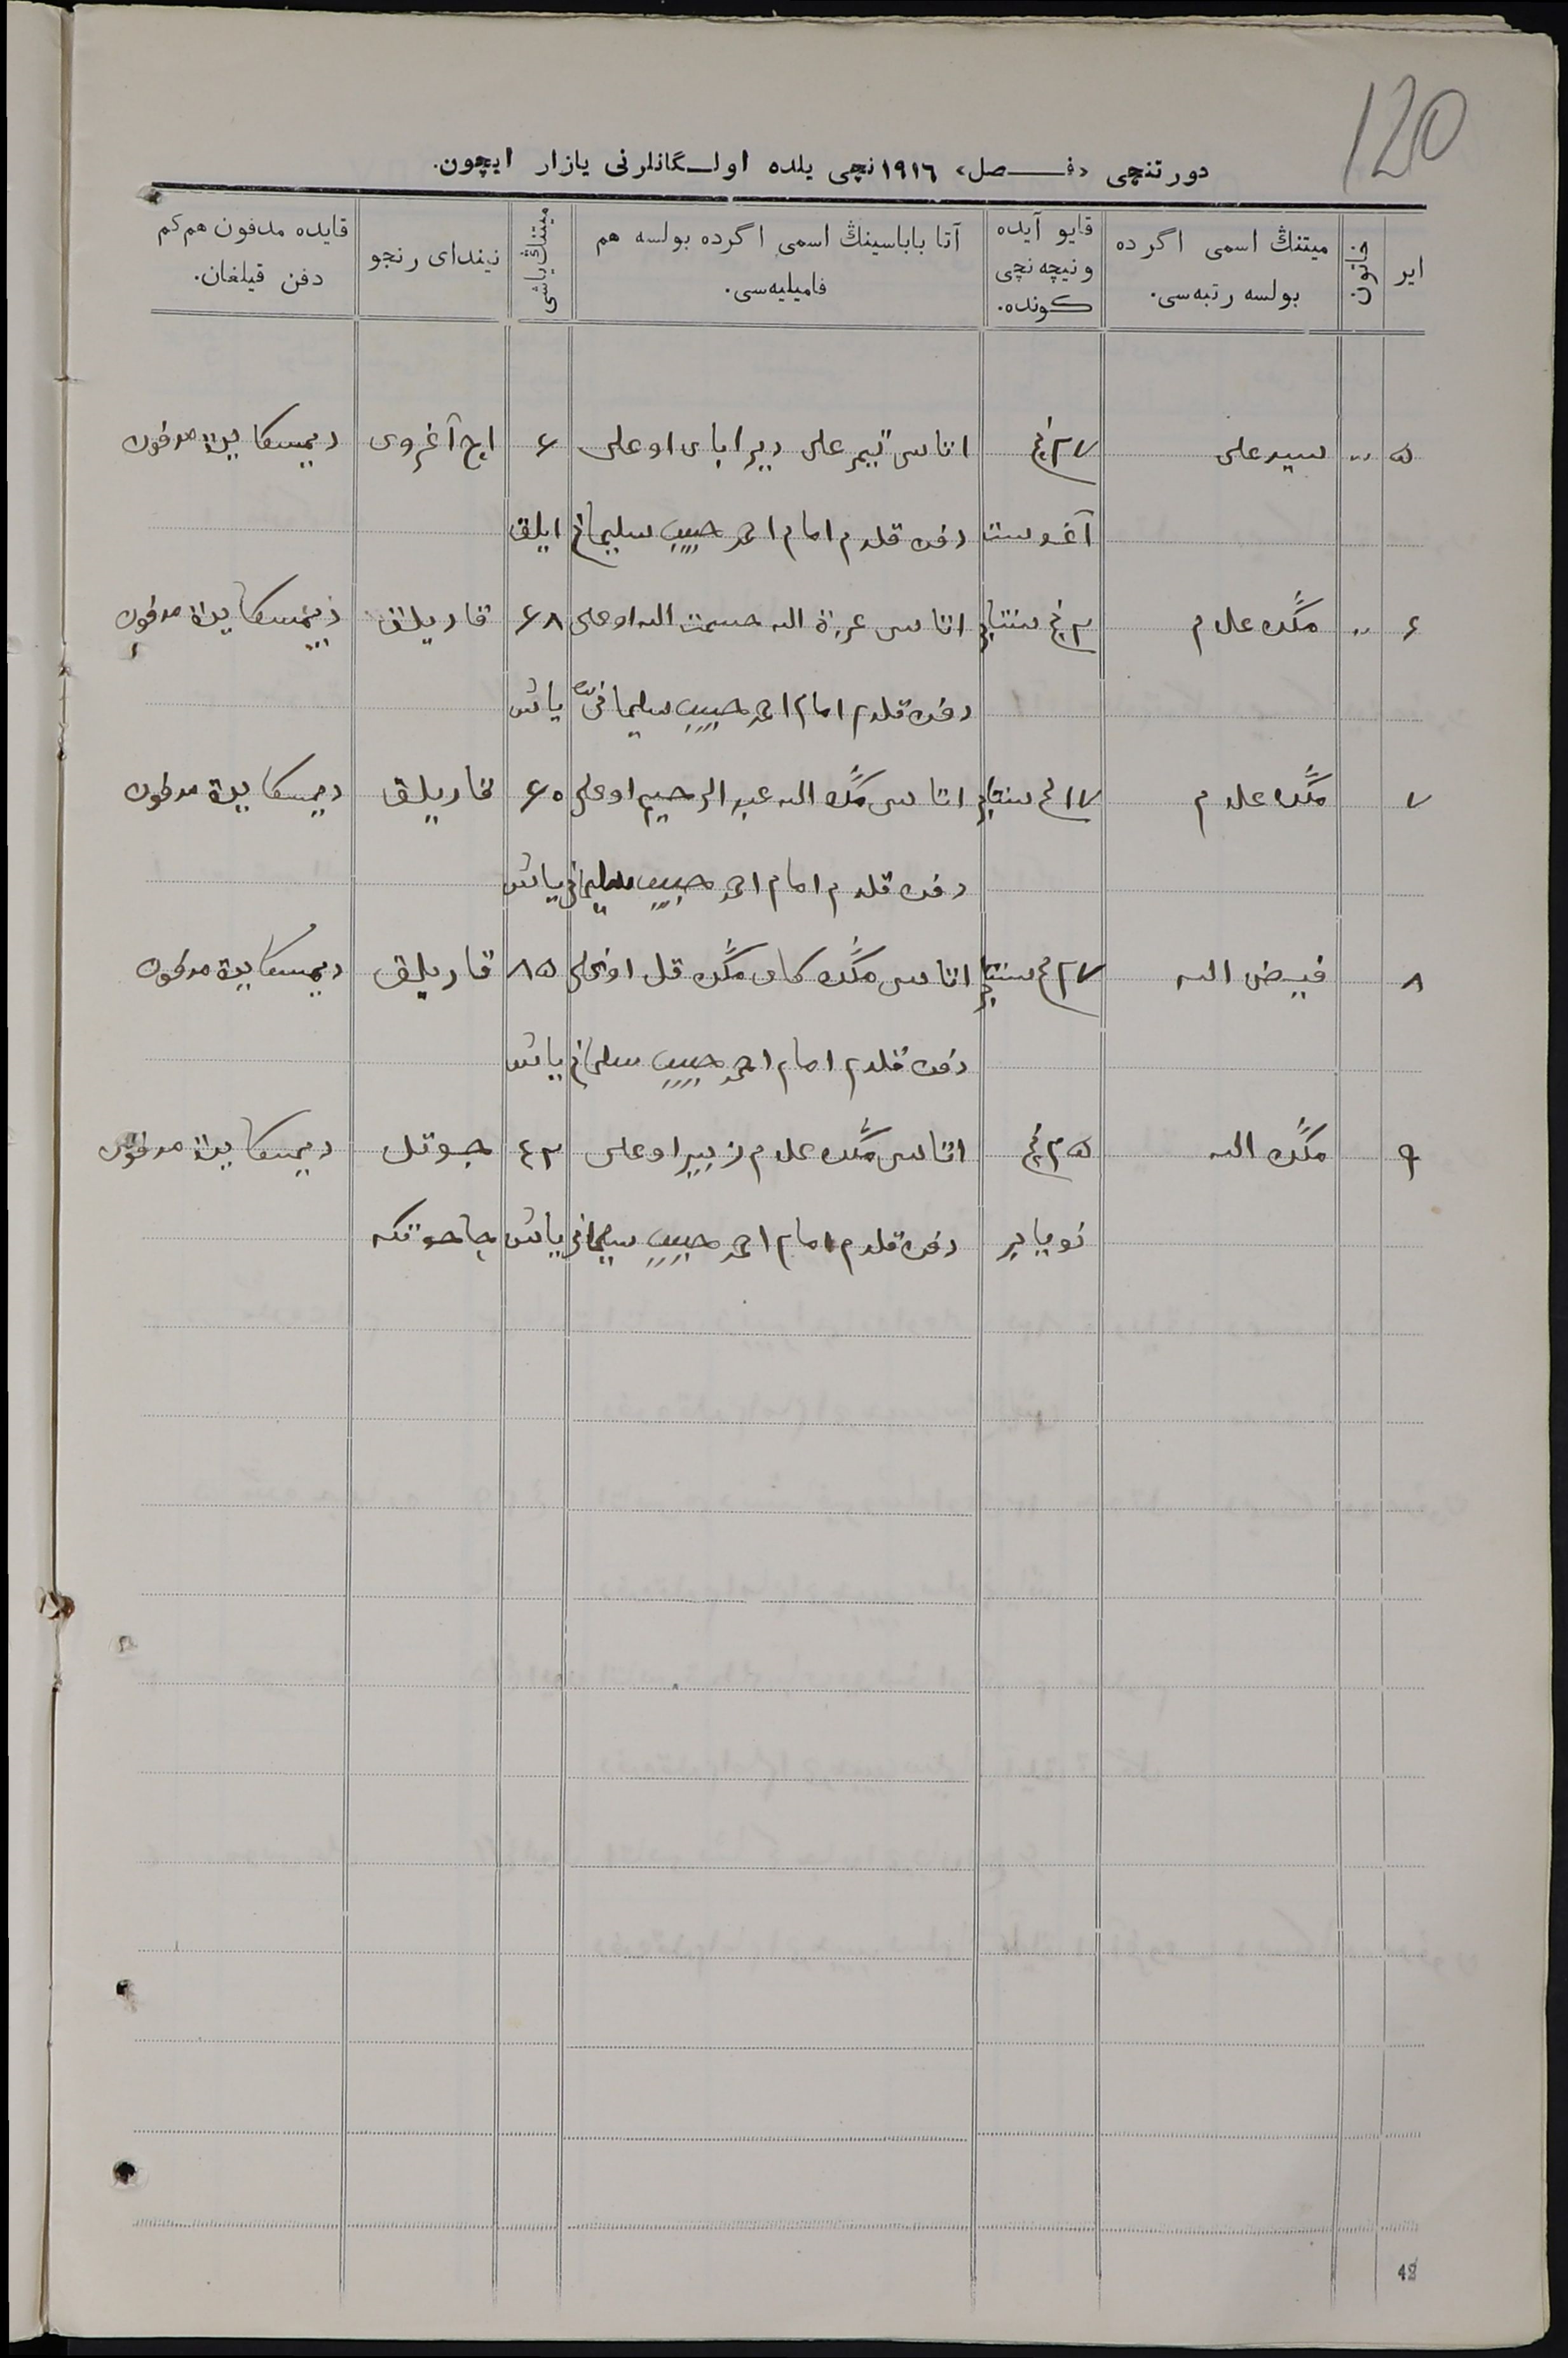 120
دورتنچی «فـصل» ١٩١٦نچی یلده اولـگانلرنی یازار ایچون.
ایر
خاتون
میتنڭ اسمی اگرده
بولسه رتبه‌سی.
قایو آیده
ونیچه نچی
كونده.
آتا باباسینڭ اسمی اگرده بولسه هم
فامیلیه‌سی.
میتنڭ یاشی
نیندای رنجو
قایده مدفون هم كم
دفن قیلغان.
۵ سید علی ٢٧نچی اتاسی تیمر علی اوغلی ۶ اچ آغروی دیمسكایده مدفون
آغوست دفن قلدم امام احمد حبیب سلیمانی ایلق
۶ ٣نچی سنتابر اتاسی عزة الله حسمت الله اوغلی ۶٨ قاریلق دیمسكایده مدفون
دفن قلدم امام احمد حبیب سلیمانی یاش
٧ ١٧نچی سنتابر اتاسی الله عبد الرحیم اوغلی ۶٥ قاریلق دیمسكایده مدفون
دفن قلدم امام احمد حبیب سلیمانی یاش
٨ فیض الله ٢٧نچی سنتابر اتاسی ٨۵ قاریلق دیمسكایده مدفون
دفن قلدم امام احمد حبیب سلیمانی یاش
٩ ٢۵نچی اتاسی زبیر اوغلی ٤٣ جوتل دیمسكایده مدفون
نویابر دفن قلدم امام احمد حبیب سلیمانی یاش چاحوتكه
42